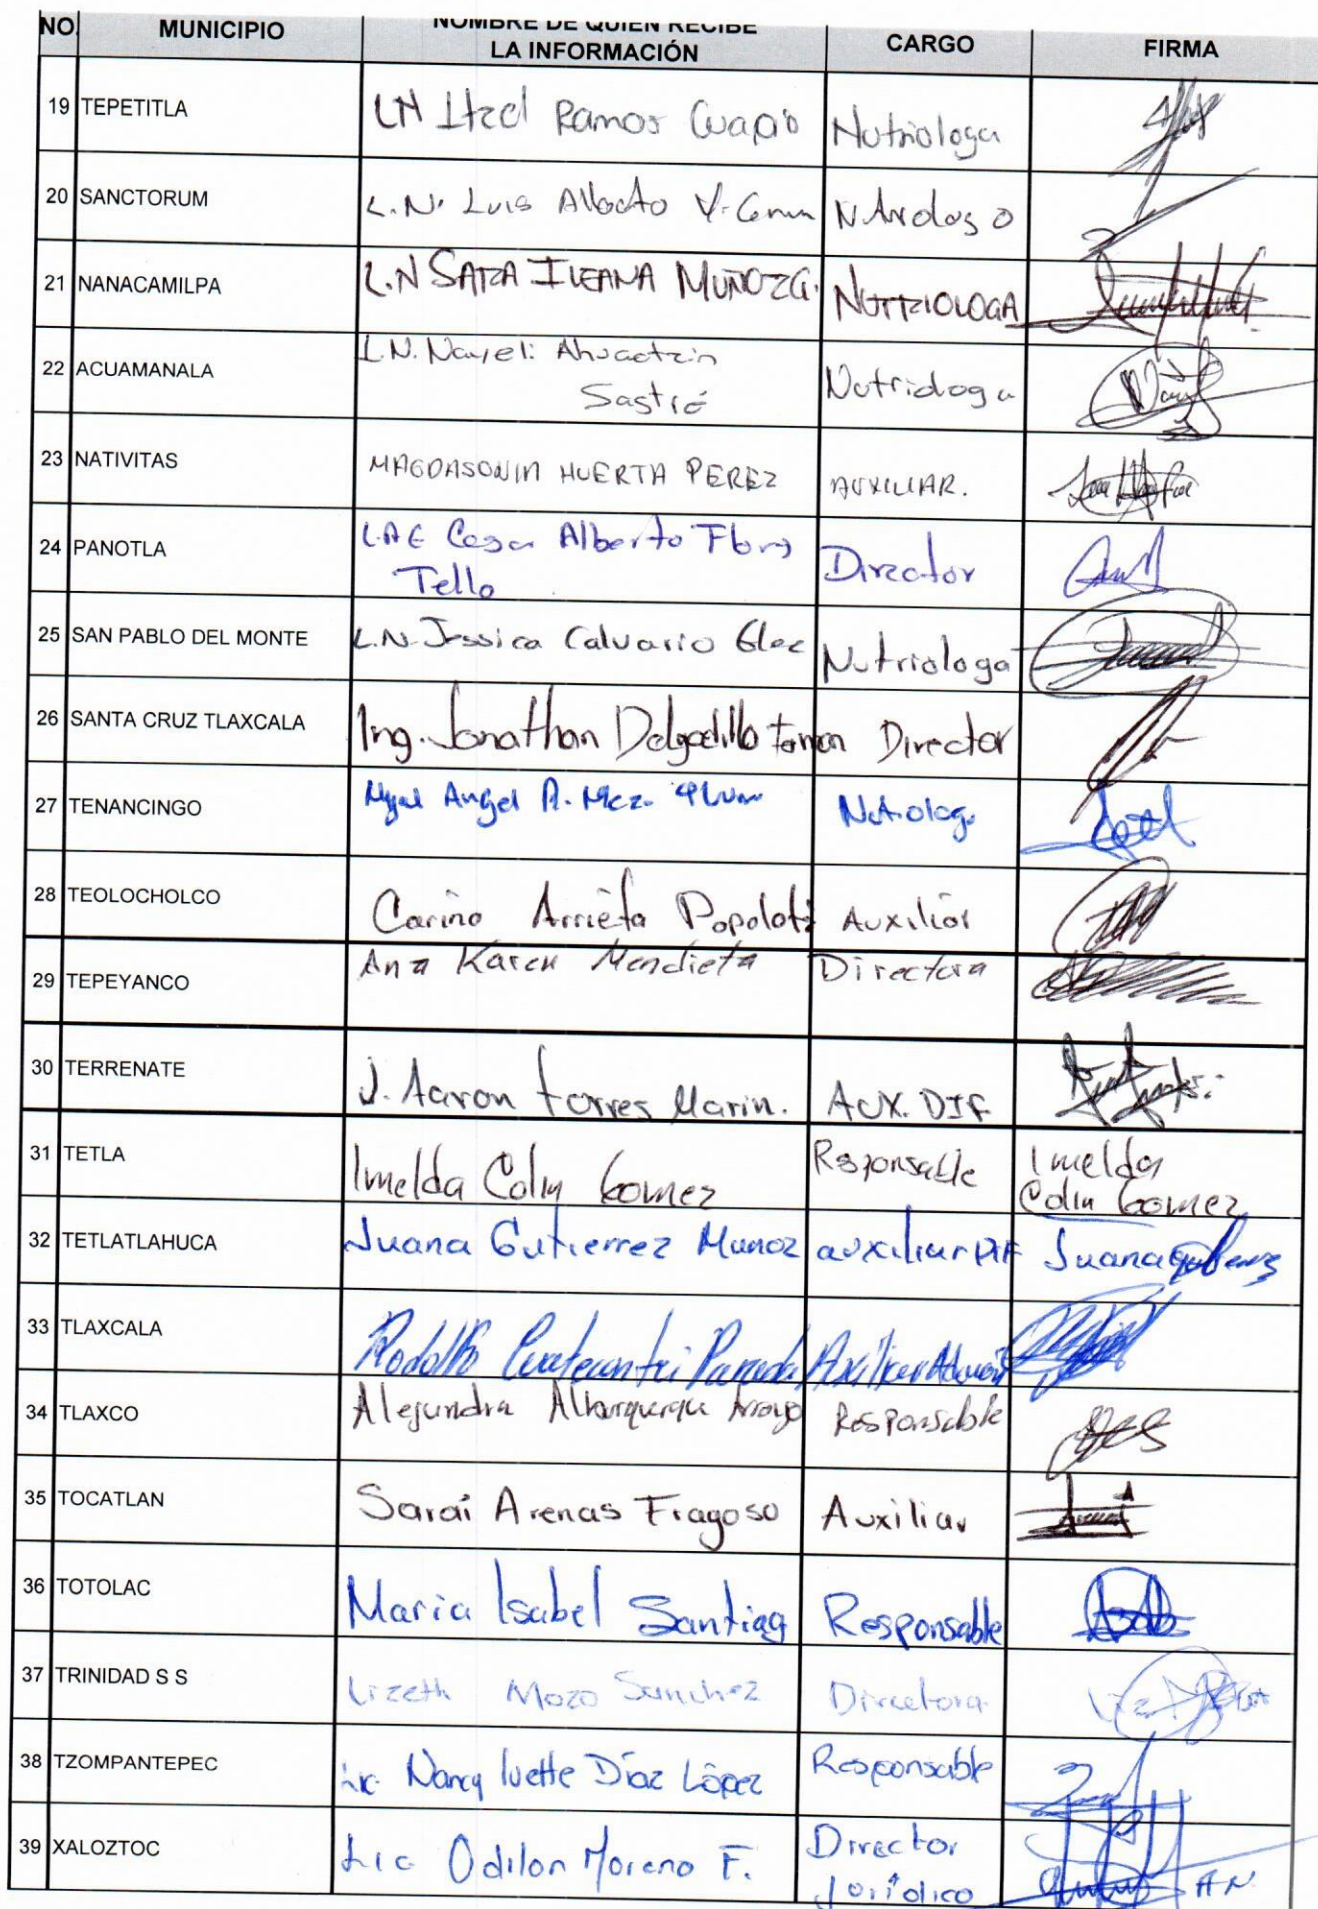 NO. MUNICIPIO NOMBRE DE QUIEN RECIBE LA INFORMACIÓN CARGO FIRMA
19 TEPETITLA LN Itzel Ramos Cuapio Nutriologa
20 SANCTORUM L.N. Luis Alberto
21 NANACAMILPA L.N SARA ILEANA MUÑOZ G. NUTRIOLOGA
22 ACUAMANALA L.N. Nayeli Ahuactzin Nutriologa
Sastré
23 NATIVITAS MAGDASONIA HUERTA PEREZ AUXILIAR.
24 PANOTLA L.A.E Cesar Alberto Flores Director
Tello
25 SAN PABLO DEL MONTE L.N. Jessica Calvario Nutriologa
26 SANTA CRUZ TLAXCALA Ing. Jonathan Delgadillo Director
27 TENANCINGO Angel Nutriologo
28 TEOLOCHOLCO Carino Arrieta Popolotl Auxiliar
29 TEPEYANCO Ana Karen Mendieta Directora
30 TERRENATE J. Aaron Torres Marin. AUX. DIF
31 TETLA Imelda Colin Gomez Responsable Imelda
Colin Gomez
32 TETLATLAHUCA Juana Gutierrez Munoz auxiliar DIF Juana
33 TLAXCALA Rodolfo Cuatecontzi Parada Auxiliar
34 TLAXCO Alejandra Alburquerque Arroyo Responsable
35 TOCATLAN Saraí Arenas Fragoso Auxiliar
36 TOTOLAC Maria Isabel Santiag Responsable
37 TRINIDAD S S Lizeth Mozo Sanchez Directora
38 TZOMPANTEPEC Lic Nancy Ivette Díaz López Responsable
39 XALOZTOC Lic Odilon Moreno F. Director
Jurídico